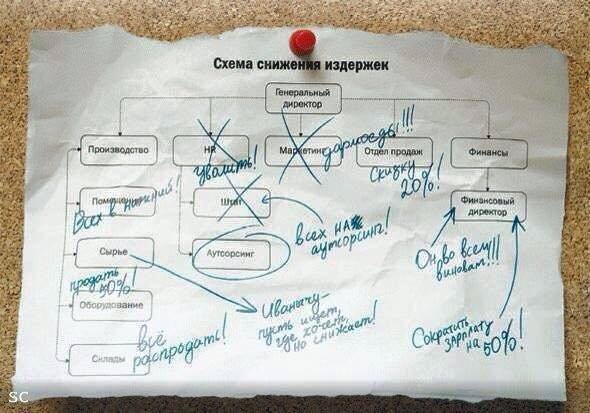 Схема снижения издержек
Генеральный
директор
Производство
HR
Маркетинг
Отдел продаж
Финансы
уволить!
дармоеды!!!
скидку
20%!
Помещения
Всех в нижний!
Штат
Финансовый
директор
всех на
аутсорсинг!
Сырье
Аутсорсинг
Он во всем
виноват!!!
продать
50%!
Оборудование
Иванычу-
пусть ищет,
где хочет,
но снижает!
всё
распродать!
Склады
Сократить
зарплату
на 50%!
SC